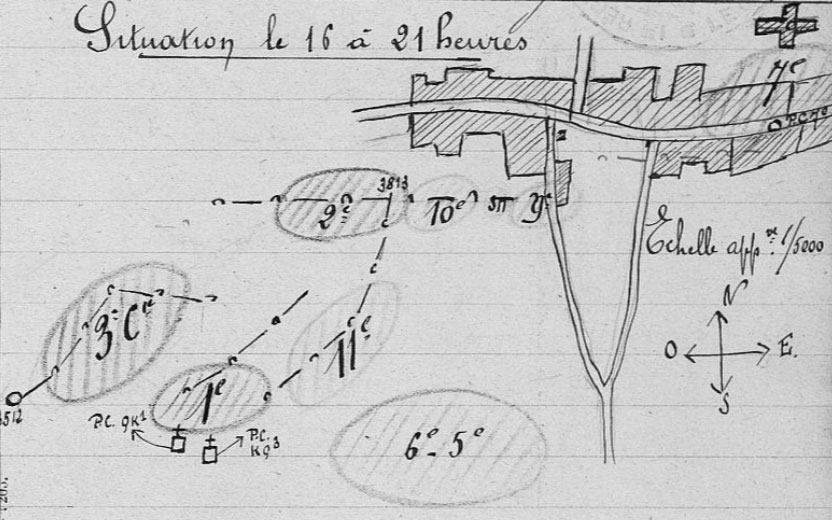 Situation le 16 à 21 heures
7e
P.C. 7e
2
3813
2e
10e
9e
Echelle appve 1/5000
N
O
E.
S
3e Cie
11e
1e
3512
P.C.
P.C.
6e - 5e